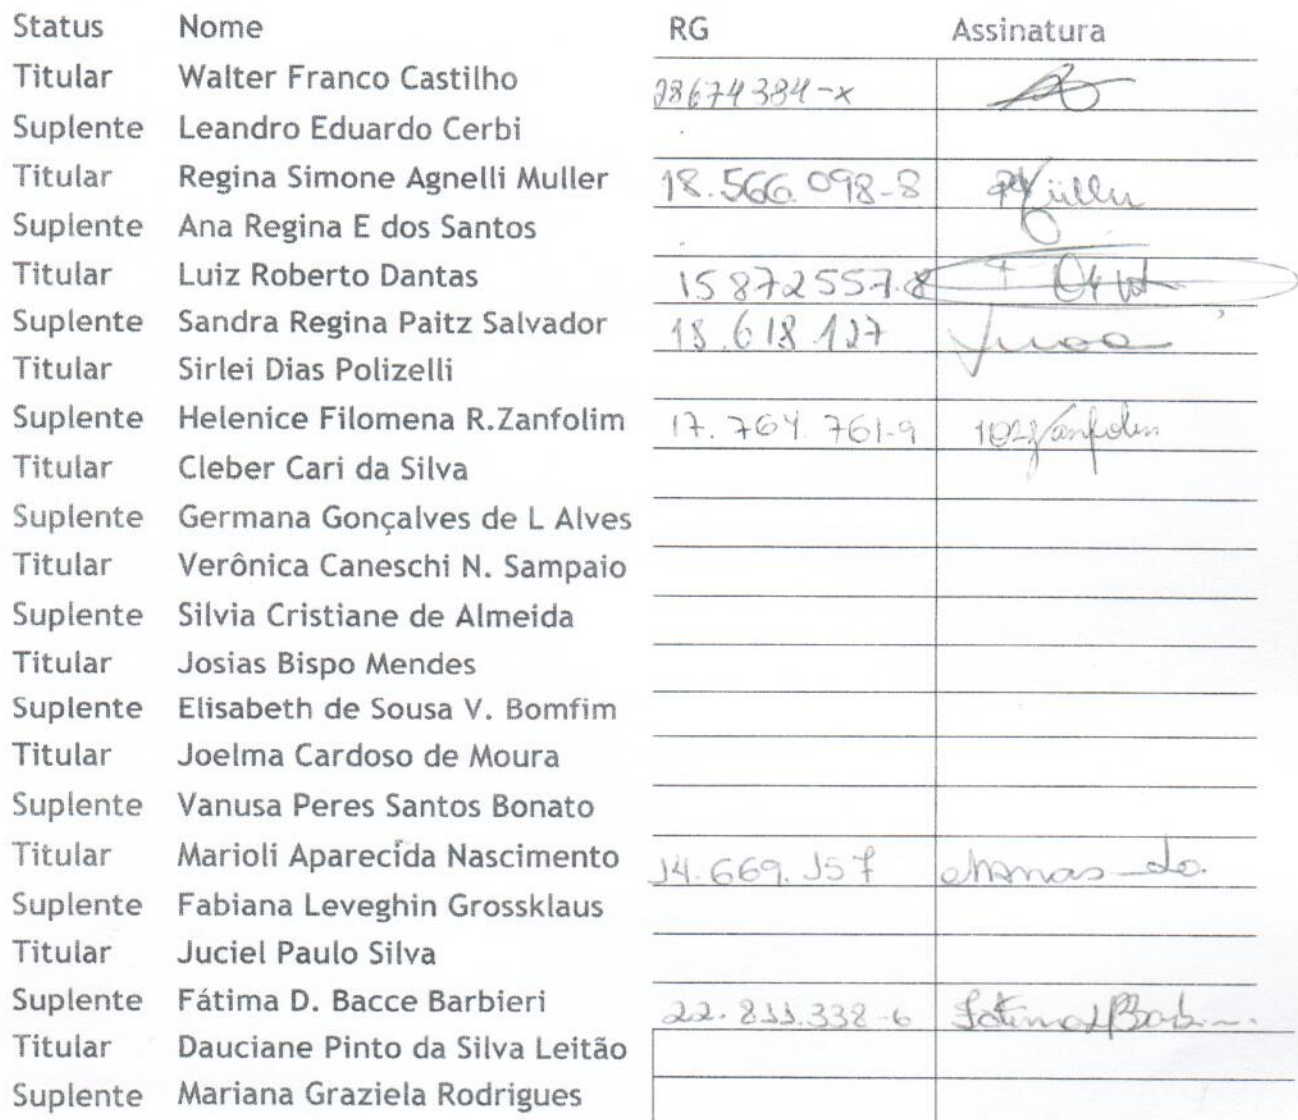 Status Nome RG Assinatura
Titular Walter Franco Castilho 28674384-x
Suplente Leandro Eduardo Cerbi
Titular Regina Simone Agnelli Muller 18.566.098-8 Müller
Suplente Ana Regina E dos Santos
Titular Luiz Roberto Dantas 15872557.8
Suplente Sandra Regina Paitz Salvador 18.618.127
Titular Sirlei Dias Polizelli
Suplente Helenice Filomena R.Zanfolim 17.764.761-9 Zanfolim
Titular Cleber Cari da Silva
Suplente Germana Gonçalves de L Alves
Titular Verônica Caneschi N. Sampaio
Suplente Silvia Cristiane de Almeida
Titular Josias Bispo Mendes
Suplente Elisabeth de Sousa V. Bomfim
Titular Joelma Cardoso de Moura
Suplente Vanusa Peres Santos Bonato
Titular Marioli Aparecida Nascimento 14.669.157
Suplente Fabiana Leveghin Grossklaus
Titular Juciel Paulo Silva
Suplente Fátima D. Bacce Barbieri 22.811.338-6 Fátima
Titular Dauciane Pinto da Silva Leitão
Suplente Mariana Graziela Rodrigues